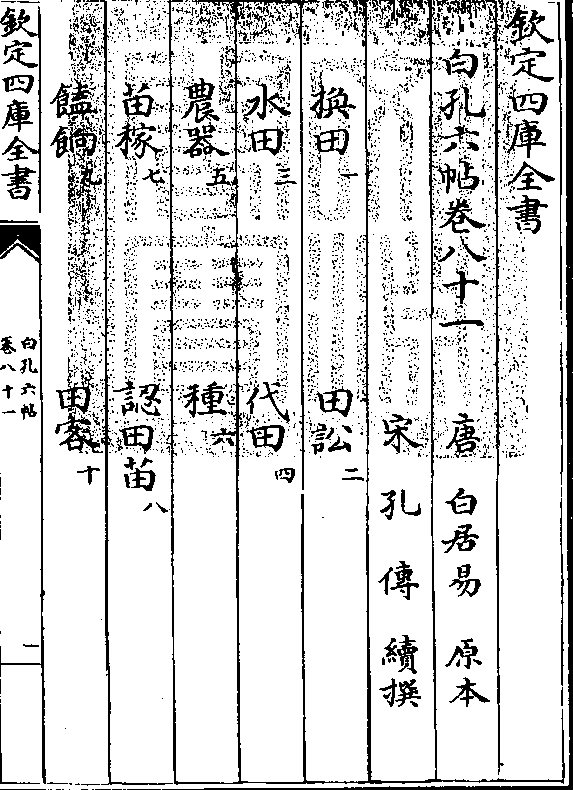 欽定四庫全書
白孔六帖卷八十一　唐　白居易　原本
宋　孔　傳　續撰
換田一　田訟二
水田三　代田四
農器五　種六
苗稼七　認田苗八
饁餉九　田客十
欽定四庫全書
白孔六帖
卷八十一
一